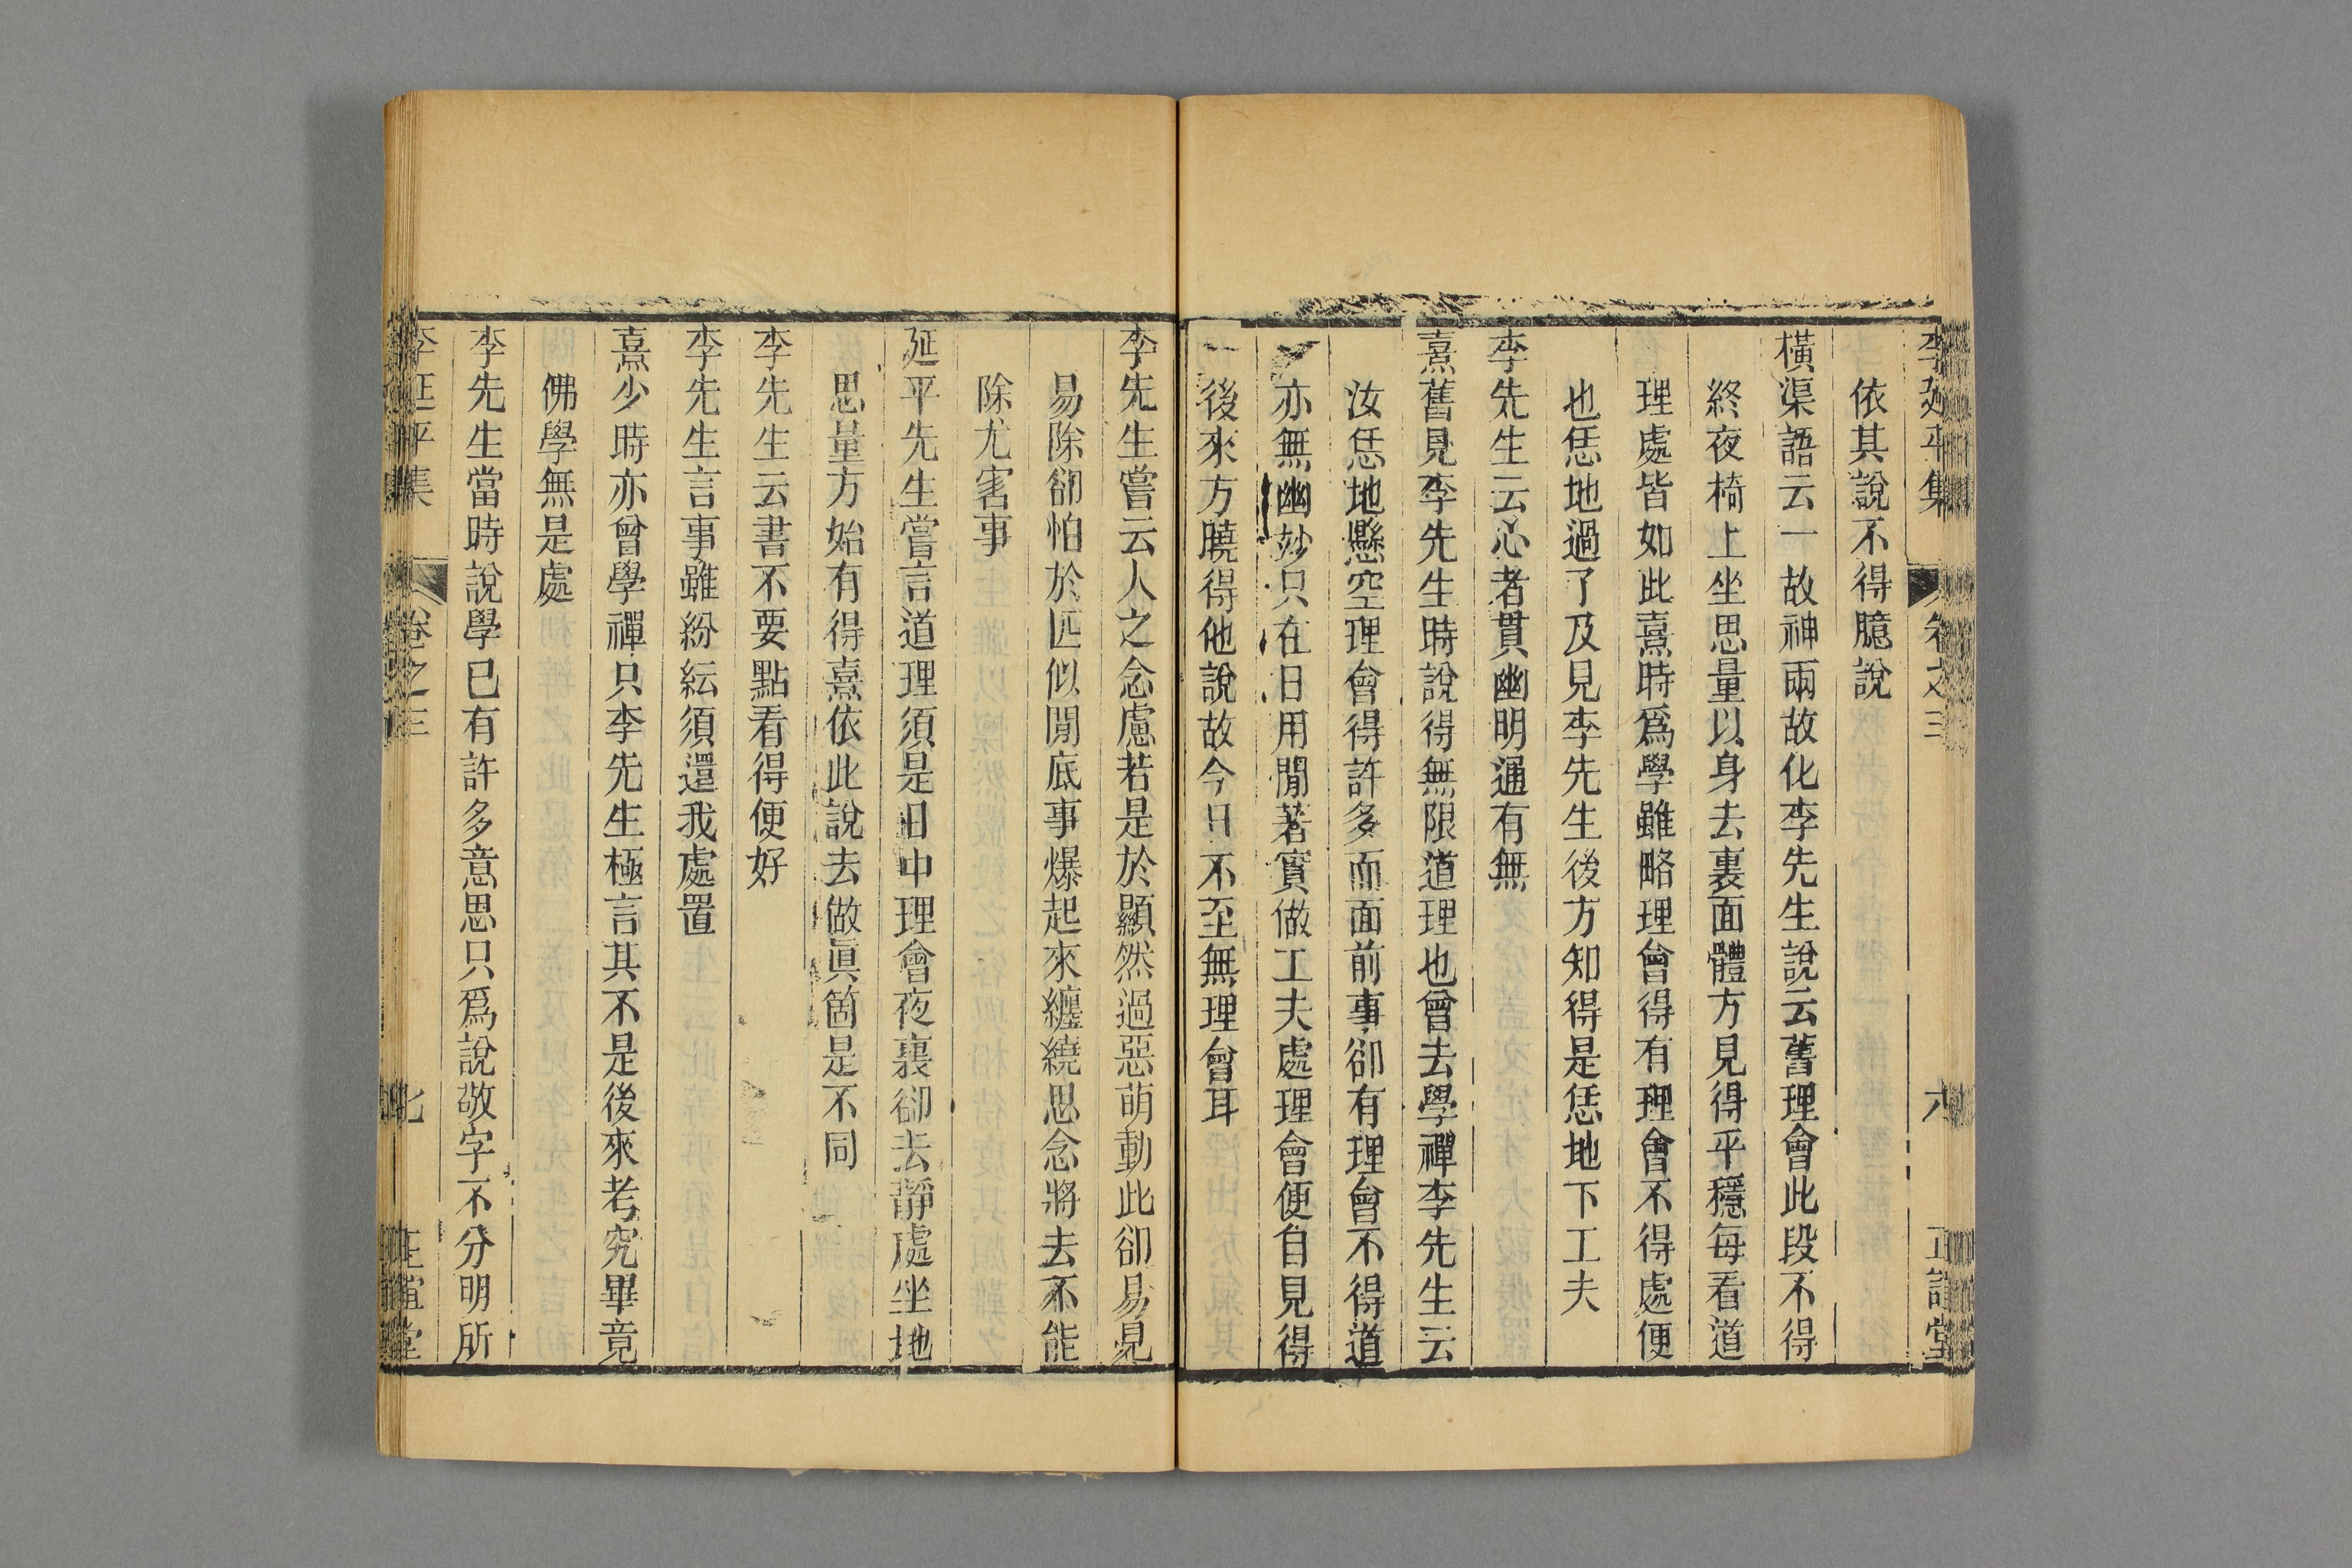 李延平集 卷之三 六 正誼堂
依其說不得臆說
橫渠語云一故神兩故化李先生說云舊理會此段不得
終夜椅上坐思量以身去裏面體方見得平穩每看道
理處皆如此熹時爲學雖略理會得有理會不得處便
也恁地過了及見李先生後方知得是恁地下工夫
李先生云心者貫幽明通有無
熹舊見李先生時說得無限道理也曾去學禪李先生云
汝恁地懸空理會得許多而面前事卻有理會不得道
亦無幽妙只在日用閒著實做工夫處理會便自見得
後來方曉得他說故今日不至無理會耳
李先生嘗云人之念慮若是於顯然過惡萌動此卻易見
易除卻怕於匹似閒底事爆起來纏繞思念將去不能
除尤害事
延平先生嘗言道理須是日中理會夜裏卻去靜處坐地
思量方始有得熹依此說去做眞箇是不同
李先生云書不要點看得便好
李先生言事雖紛紜須還我處置
熹少時亦曾學禪只李先生極言其不是後來考究畢竟
佛學無是處
李先生當時說學已有許多意思只爲說敬字不分明所
李延平集 卷之三 七 正誼堂